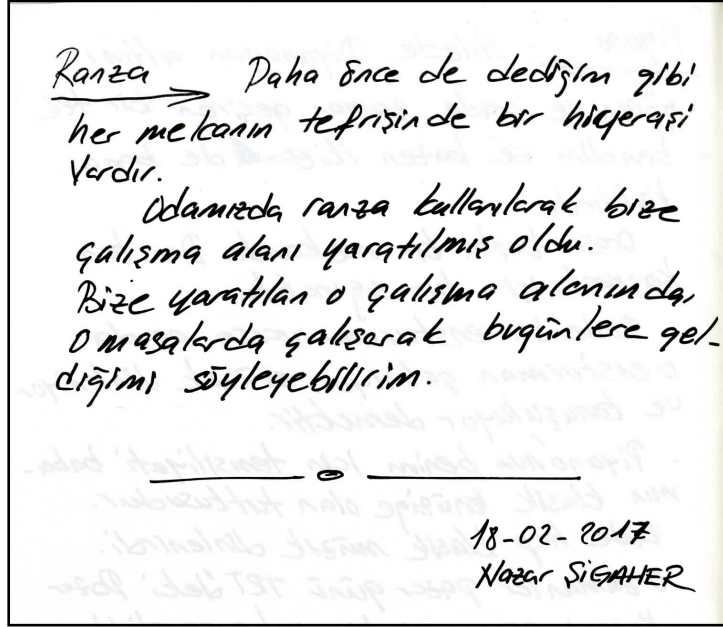 Ranza → Daha önce de dediğim gibi
her mekanın tefrişinde bir hiyerarşi
vardır.
Odamızda ranza kullanılarak bize
çalışma alanı yaratılmış oldu.
Bize yaratılan o çalışma alanında,
o masalarda çalışarak bugünlere gel-
diğimi söyleyebilirim.
18-02-2017
Nazar ŞİGAHER